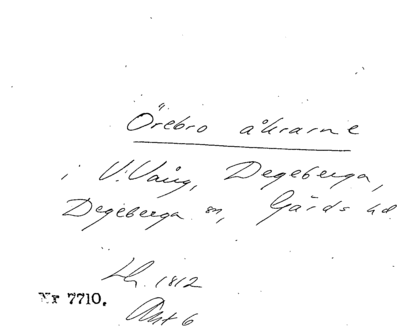 Örebro åkrarne
i V. Vång, Degeberga,
Degeberga sn, Gärds hd
Lh. 1812
Nr 7710.
Akt 6